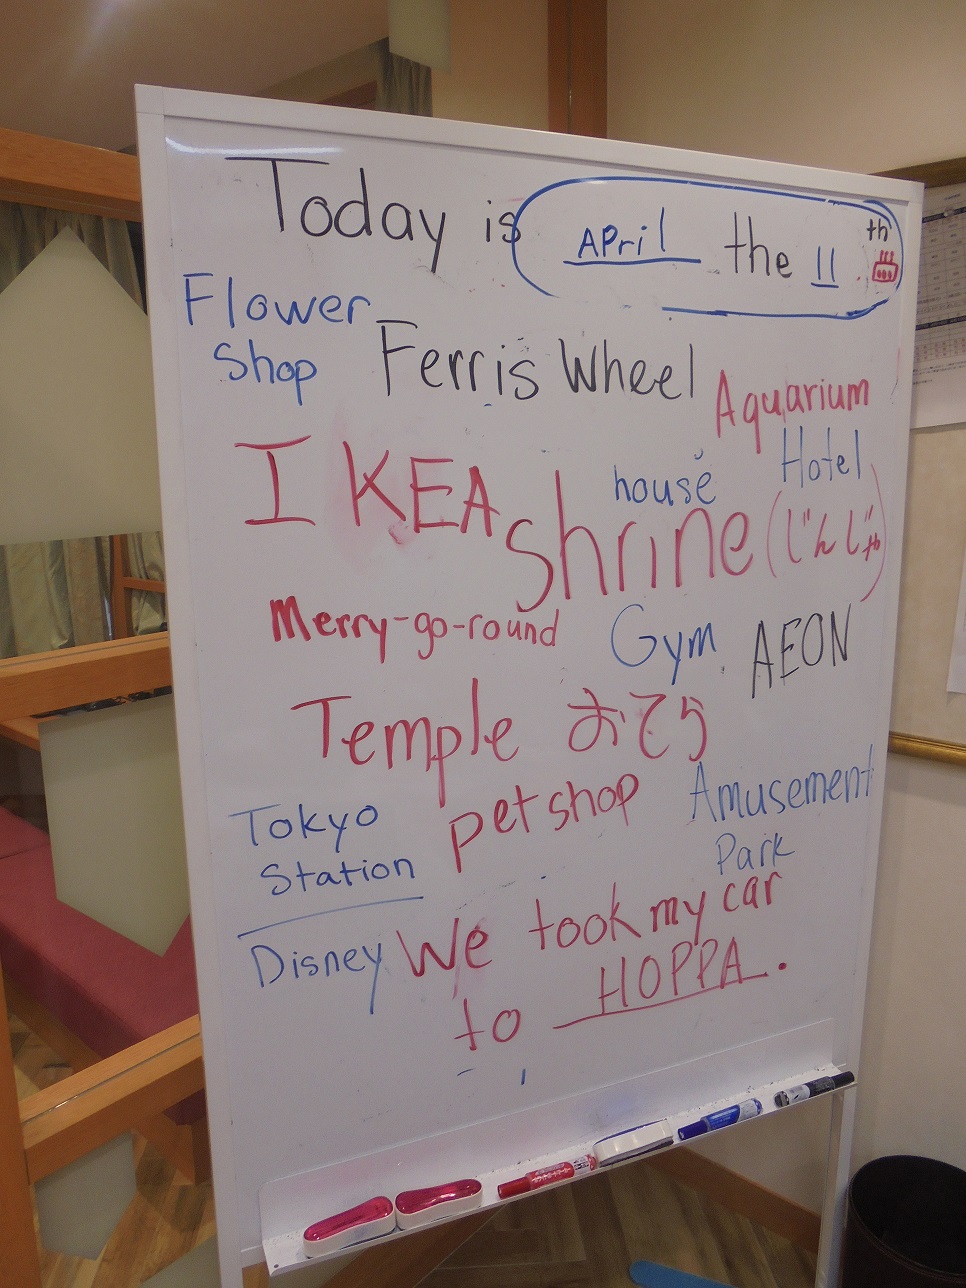 Today is April the 11th
Flower
Shop
Ferris Wheel
Aquarium
IKEA
house
Hotel
Shrine (じんじゃ)
Merry-go-round
Gym
AEON
Temple おてら
Tokyo
Station
pet shop
Amusement
Park
Disney
We took my car
to HOPPA.